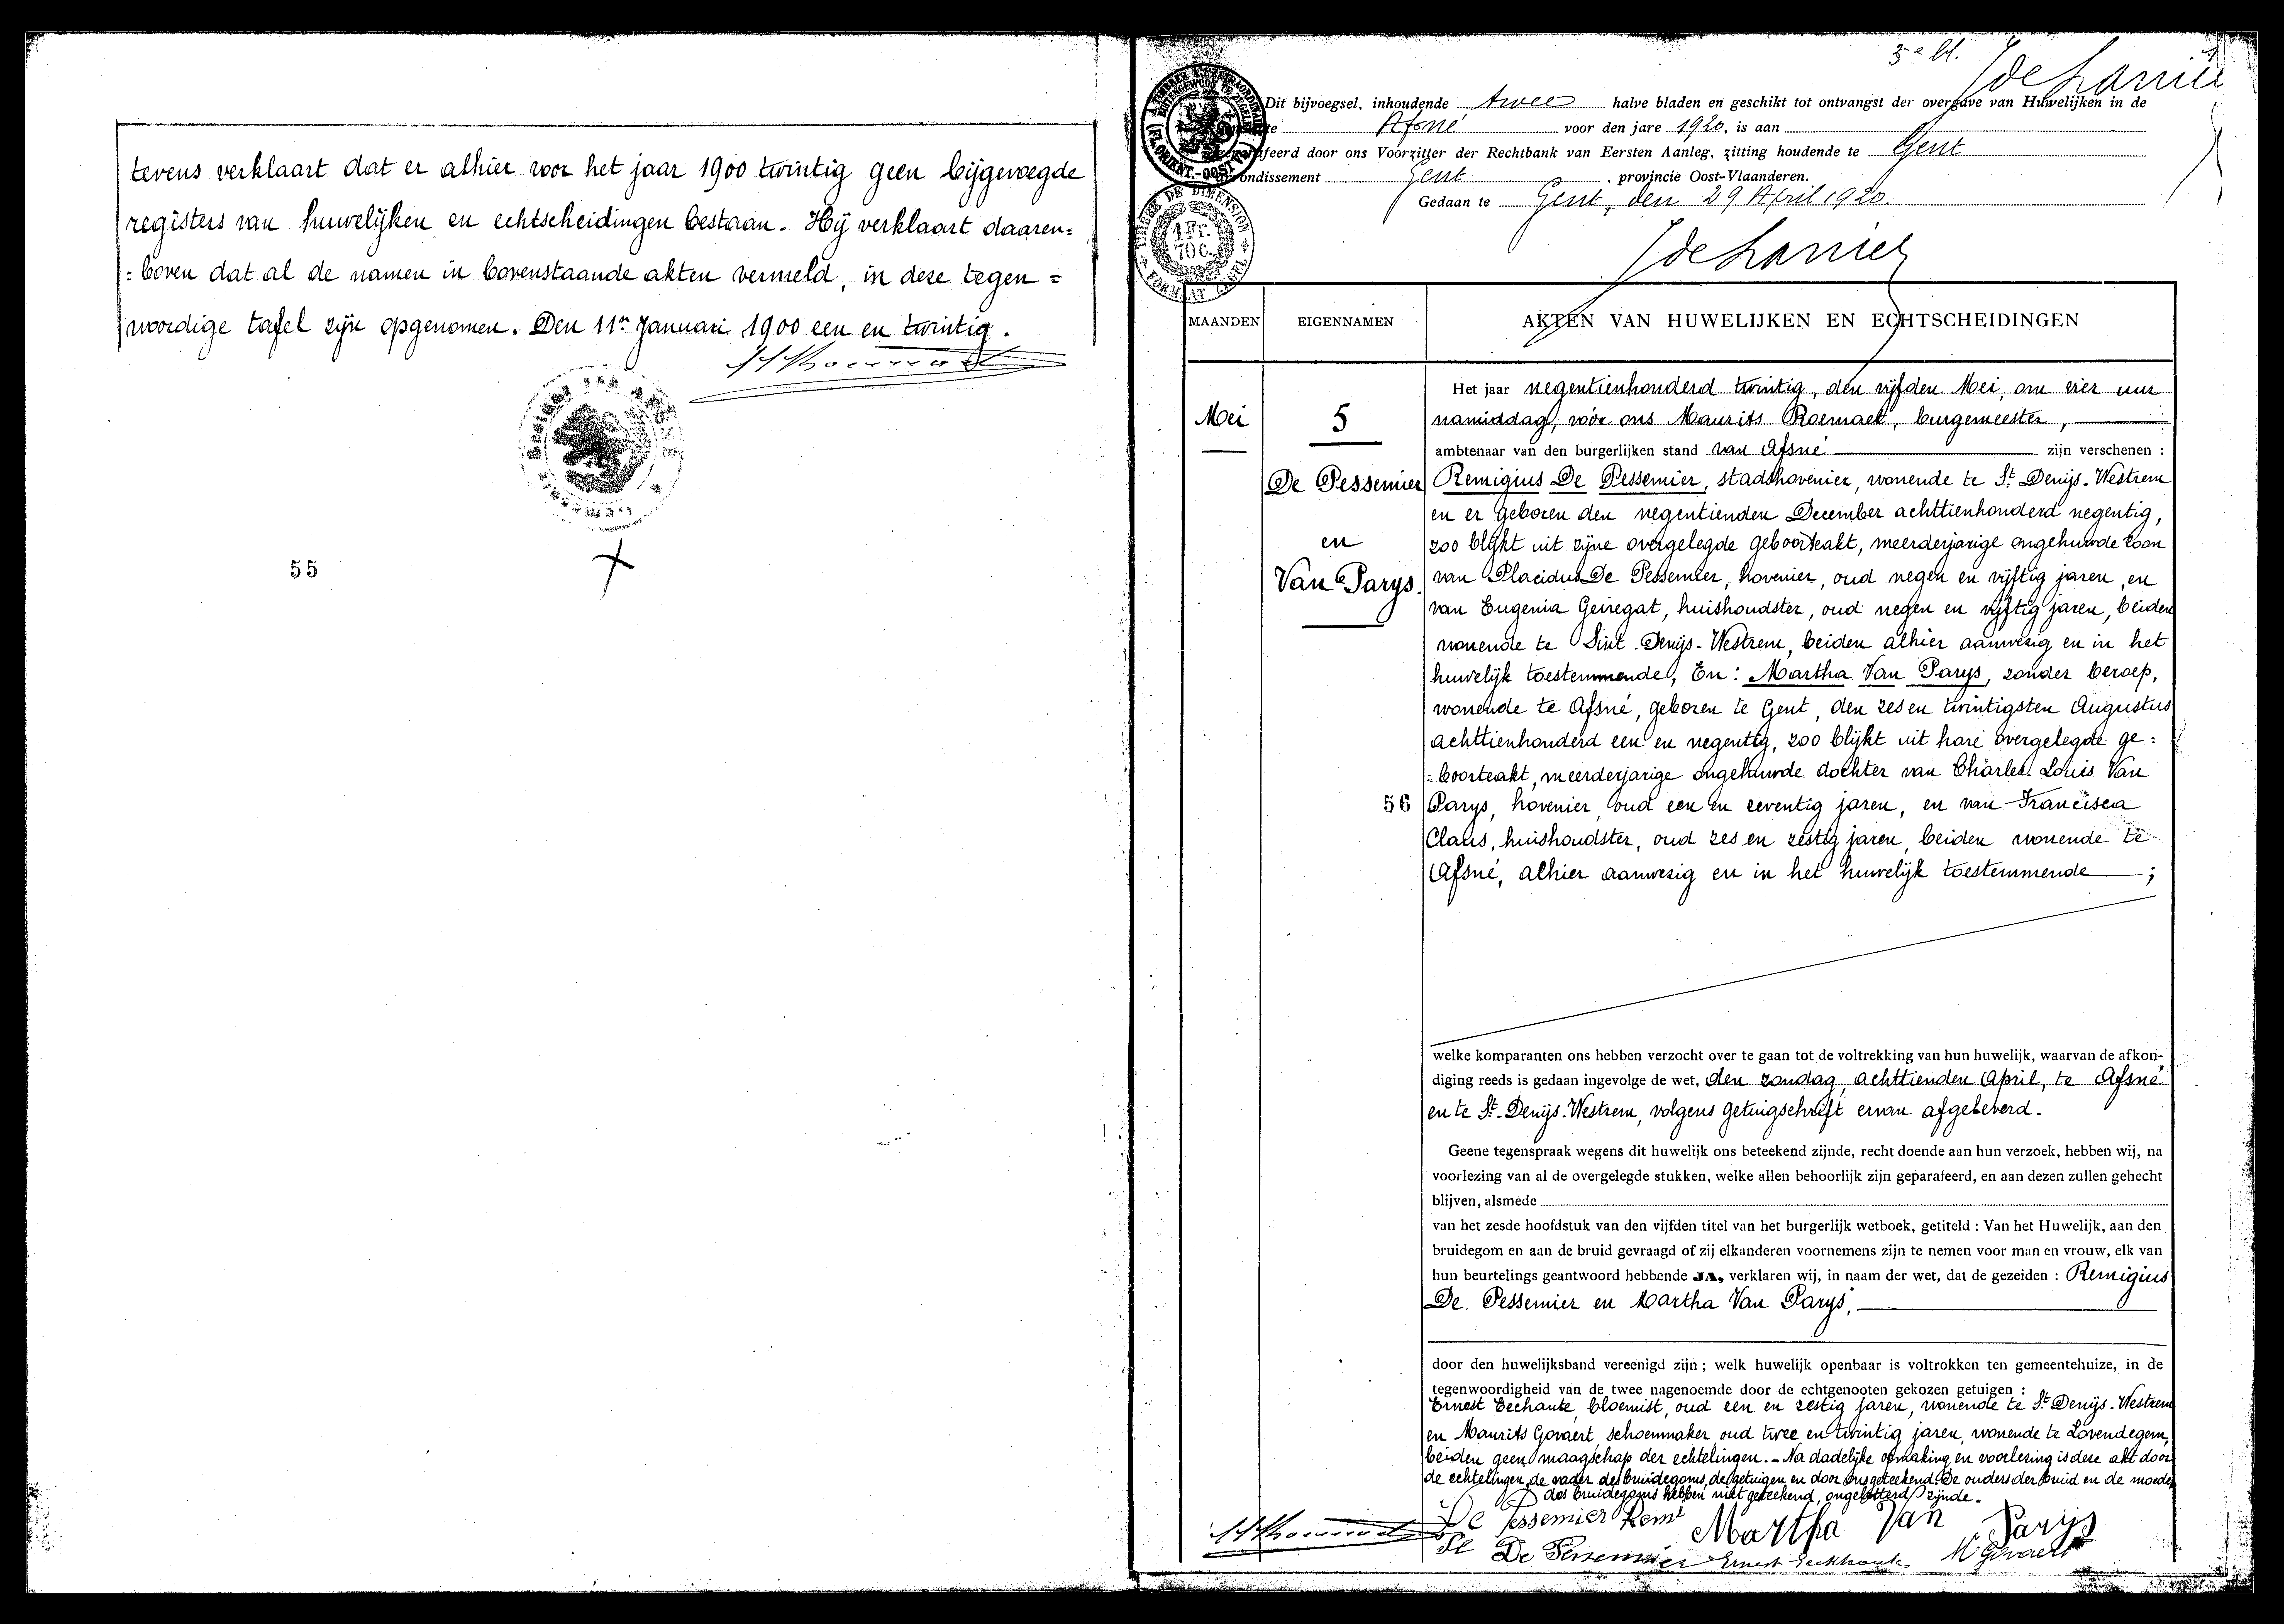 tevens verklaart dat er alhier voor het jaar 1900 twintig geen bijgevoegde
registers van huwelijken en echtscheidingen bestaan. Hij verklaart daaren=
=boven dat al de namen in bovenstaande akten vermeld, in deze tegen=
woordige tafel zijn opgenomen. Den 11n Januari 1900 een en twintig.
55
3e bl.
Dit bijvoegsel, inhoudende twee halve bladen en geschikt tot ontvangst der overgave van Huwelijken in de
Afsné voor den jare 1920, is aan
door ons Voorzitter der Rechtbank van Eersten Aanleg, zitting houdende te Gent
Gent, provincie Oost-Vlaanderen.
Gedaan te Gent, den 29 April 1920
TIMBRE DE DIMENSION
1 Fr.
70 C.
FORMAAT ZEGEL
MAANDEN
EIGENNAMEN
AKTEN VAN HUWELIJKEN EN ECHTSCHEIDINGEN
Mei
5
De Pessemier
en
Van Parys.
Het jaar negentienhonderd twintig, den vijfden Mei, om vier uur
namiddag, vóór ons Maurits Roemaet, burgemeester,
ambtenaar van den burgerlijken stand van Afsné zijn verschenen :
Remigius De Pessemier, stadshovenier, wonende te St. Denijs-Westrem
en er geboren den negentienden December achttienhonderd negentig,
zoo blijkt uit zijne overgelegde geboorteakt, meerderjarige ongehuwde zoon
van Placidus De Pessemier, hovenier, oud negen en vijftig jaren, en
van Eugenia Geiregat, huishoudster, oud negen en vijftig jaren, beiden
wonende te Sint-Denijs-Westrem, beiden alhier aanwezig en in het
huwelijk toestemmende, En: Martha Van Parys, zonder beroep,
wonende te Afsné, geboren te Gent, den zes en twintigsten Augustus
achttienhonderd een en negentig, zoo blijkt uit hare overgelegde ge=
=boorteakt, meerderjarige ongehuwde dochter van Charles Louis Van
56
Parys, hovenier, oud een en zeventig jaren, en van Francisca
Claus, huishoudster, oud zes en zestig jaren, beiden wonende te
Afsné, alhier aanwezig en in het huwelijk toestemmende ;
welke komparanten ons hebben verzocht over te gaan tot de voltrekking van hun huwelijk, waarvan de afkon-
diging reeds is gedaan ingevolge de wet, den zondag achttienden April, te Afsné
en te St. Denijs-Westrem, volgens getuigschrift ervan afgeleverd.
Geene tegenspraak wegens dit huwelijk ons beteekend zijnde, recht doende aan hun verzoek, hebben wij, na
voorlezing van al de overgelegde stukken, welke allen behoorlijk zijn geparafeerd, en aan dezen zullen gehecht
blijven, alsmede
van het zesde hoofdstuk van den vijfden titel van het burgerlijk wetboek, getiteld : Van het Huwelijk, aan den
bruidegom en aan de bruid gevraagd of zij elkanderen voornemens zijn te nemen voor man en vrouw, elk van
hun beurtelings geantwoord hebbende JA, verklaren wij, in naam der wet, dat de gezeiden : Remigius
De Pessemier en Martha Van Parys,
door den huwelijksband vereenigd zijn ; welk huwelijk openbaar is voltrokken ten gemeentehuize, in de
tegenwoordigheid van de twee nagenoemde door de echtgenooten gekozen getuigen :
Ernest Eechaute, bloemist, oud een en zestig jaren, wonende te St. Denijs-Westrem
en Maurits Govaert, schoenmaker, oud twee en twintig jaren, wonende te Lovendegem,
beiden geen maagschap der echtelingen. - Na dadelijke opmaking en voorlezing is deze akt door
de echtelingen, de vader des bruidegoms, de getuigen en door ons geteekend. De ouders der bruid en de moeder
des bruidegoms hebben niet geteekend, ongeletterd zijnde.
De Pessemier Remi
Martha Van Parijs
Pl De Pessemier
Ernest Eeckhaute
M Govaert